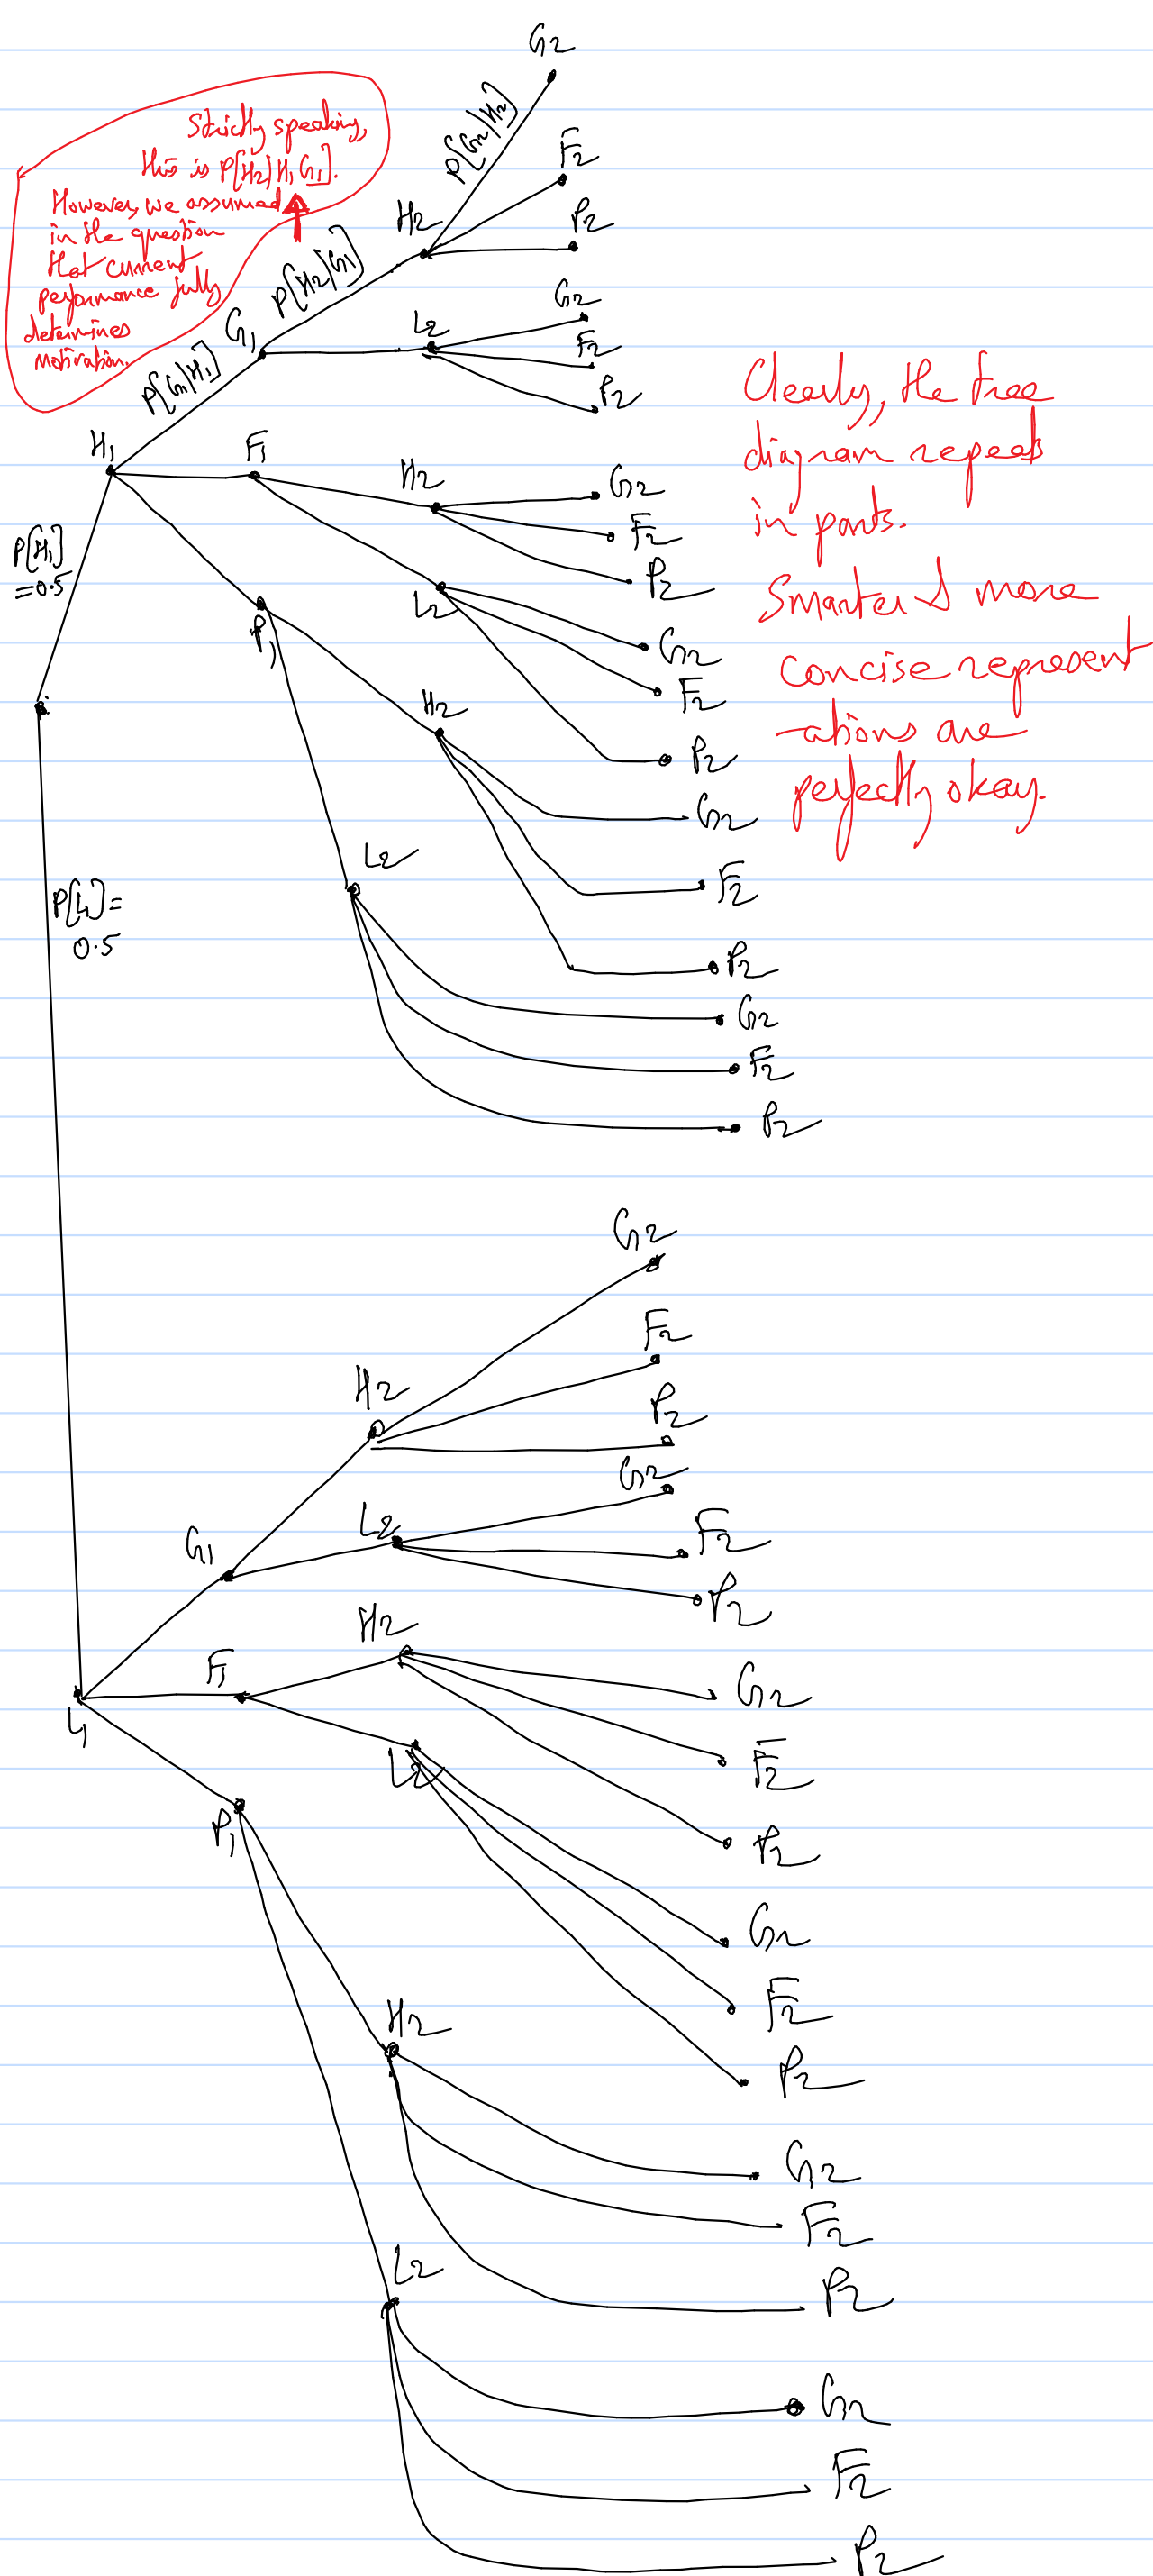 G2
Strictly speaking,
this is P[H2|H1G1].
However, we assumed
in the question
that current
performance fully
determines
motivation.
P[G2|H2]
F2
H2
P2
P[H2|G1]
G2
G1
L2
F2
P2
P[G1|H1]
H1
F1
H2
G2
F2
P2
L2
G2
F2
P2
P[H1]
=0.5
P1
H2
G2
F2
P2
L2
G2
F2
P2
P[L1]=
0.5
Clearly, the tree
diagram repeats
in parts.
Smarter & more
concise represent
-ations are
perfectly okay.
G2
F2
H2
P2
G2
G1
L2
F2
P2
H2
F1
G2
L1
F2
L2
P2
P1
G2
F2
H2
P2
G2
F2
L2
P2
G2
F2
P2